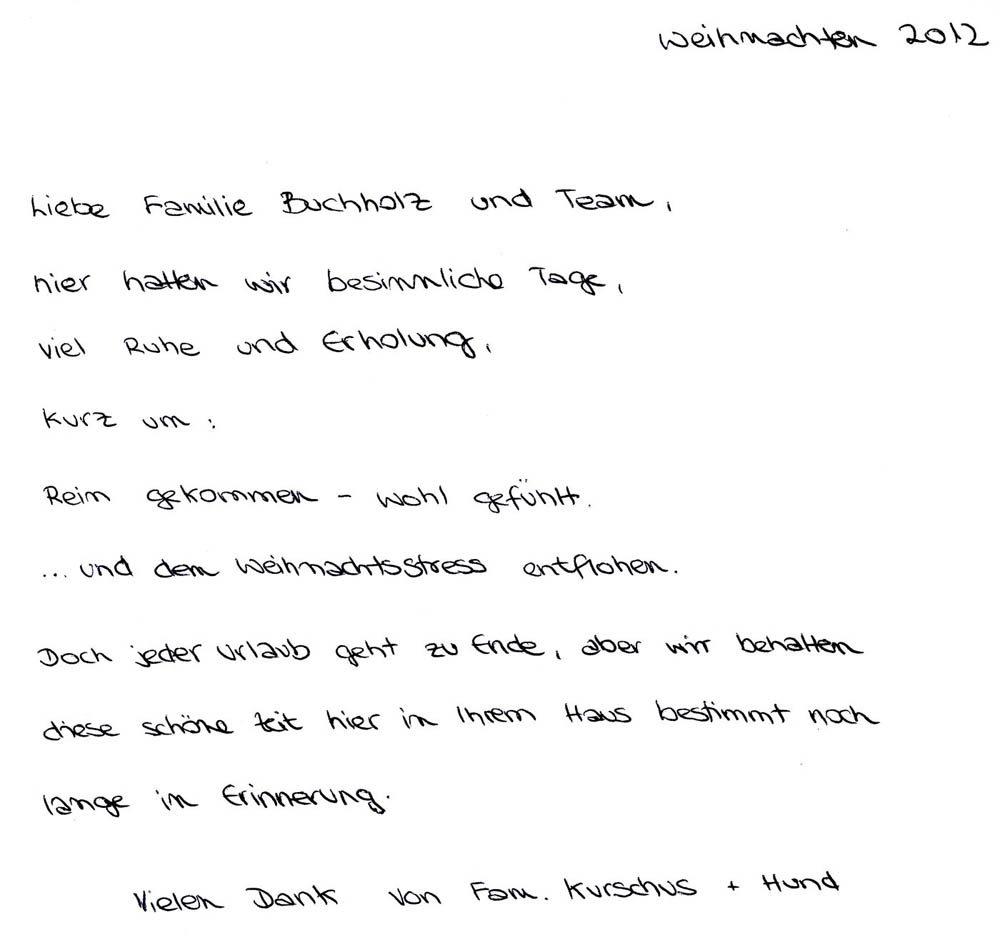 Weihnachten 2012
Liebe Familie Buchholz und Team,
hier hatten wir besinnliche Tage,
viel Ruhe und Erholung,
Kurz um:
Rein gekommen - wohl gefühlt.
... und dem Weihnachtsstress entflohen.
Doch jeder Urlaub geht zu Ende, aber wir behalten
diese schöne Zeit hier in Ihrem Haus bestimmt noch
lange in Erinnerung.
Vielen Dank von Fam. Kurschus + Hund